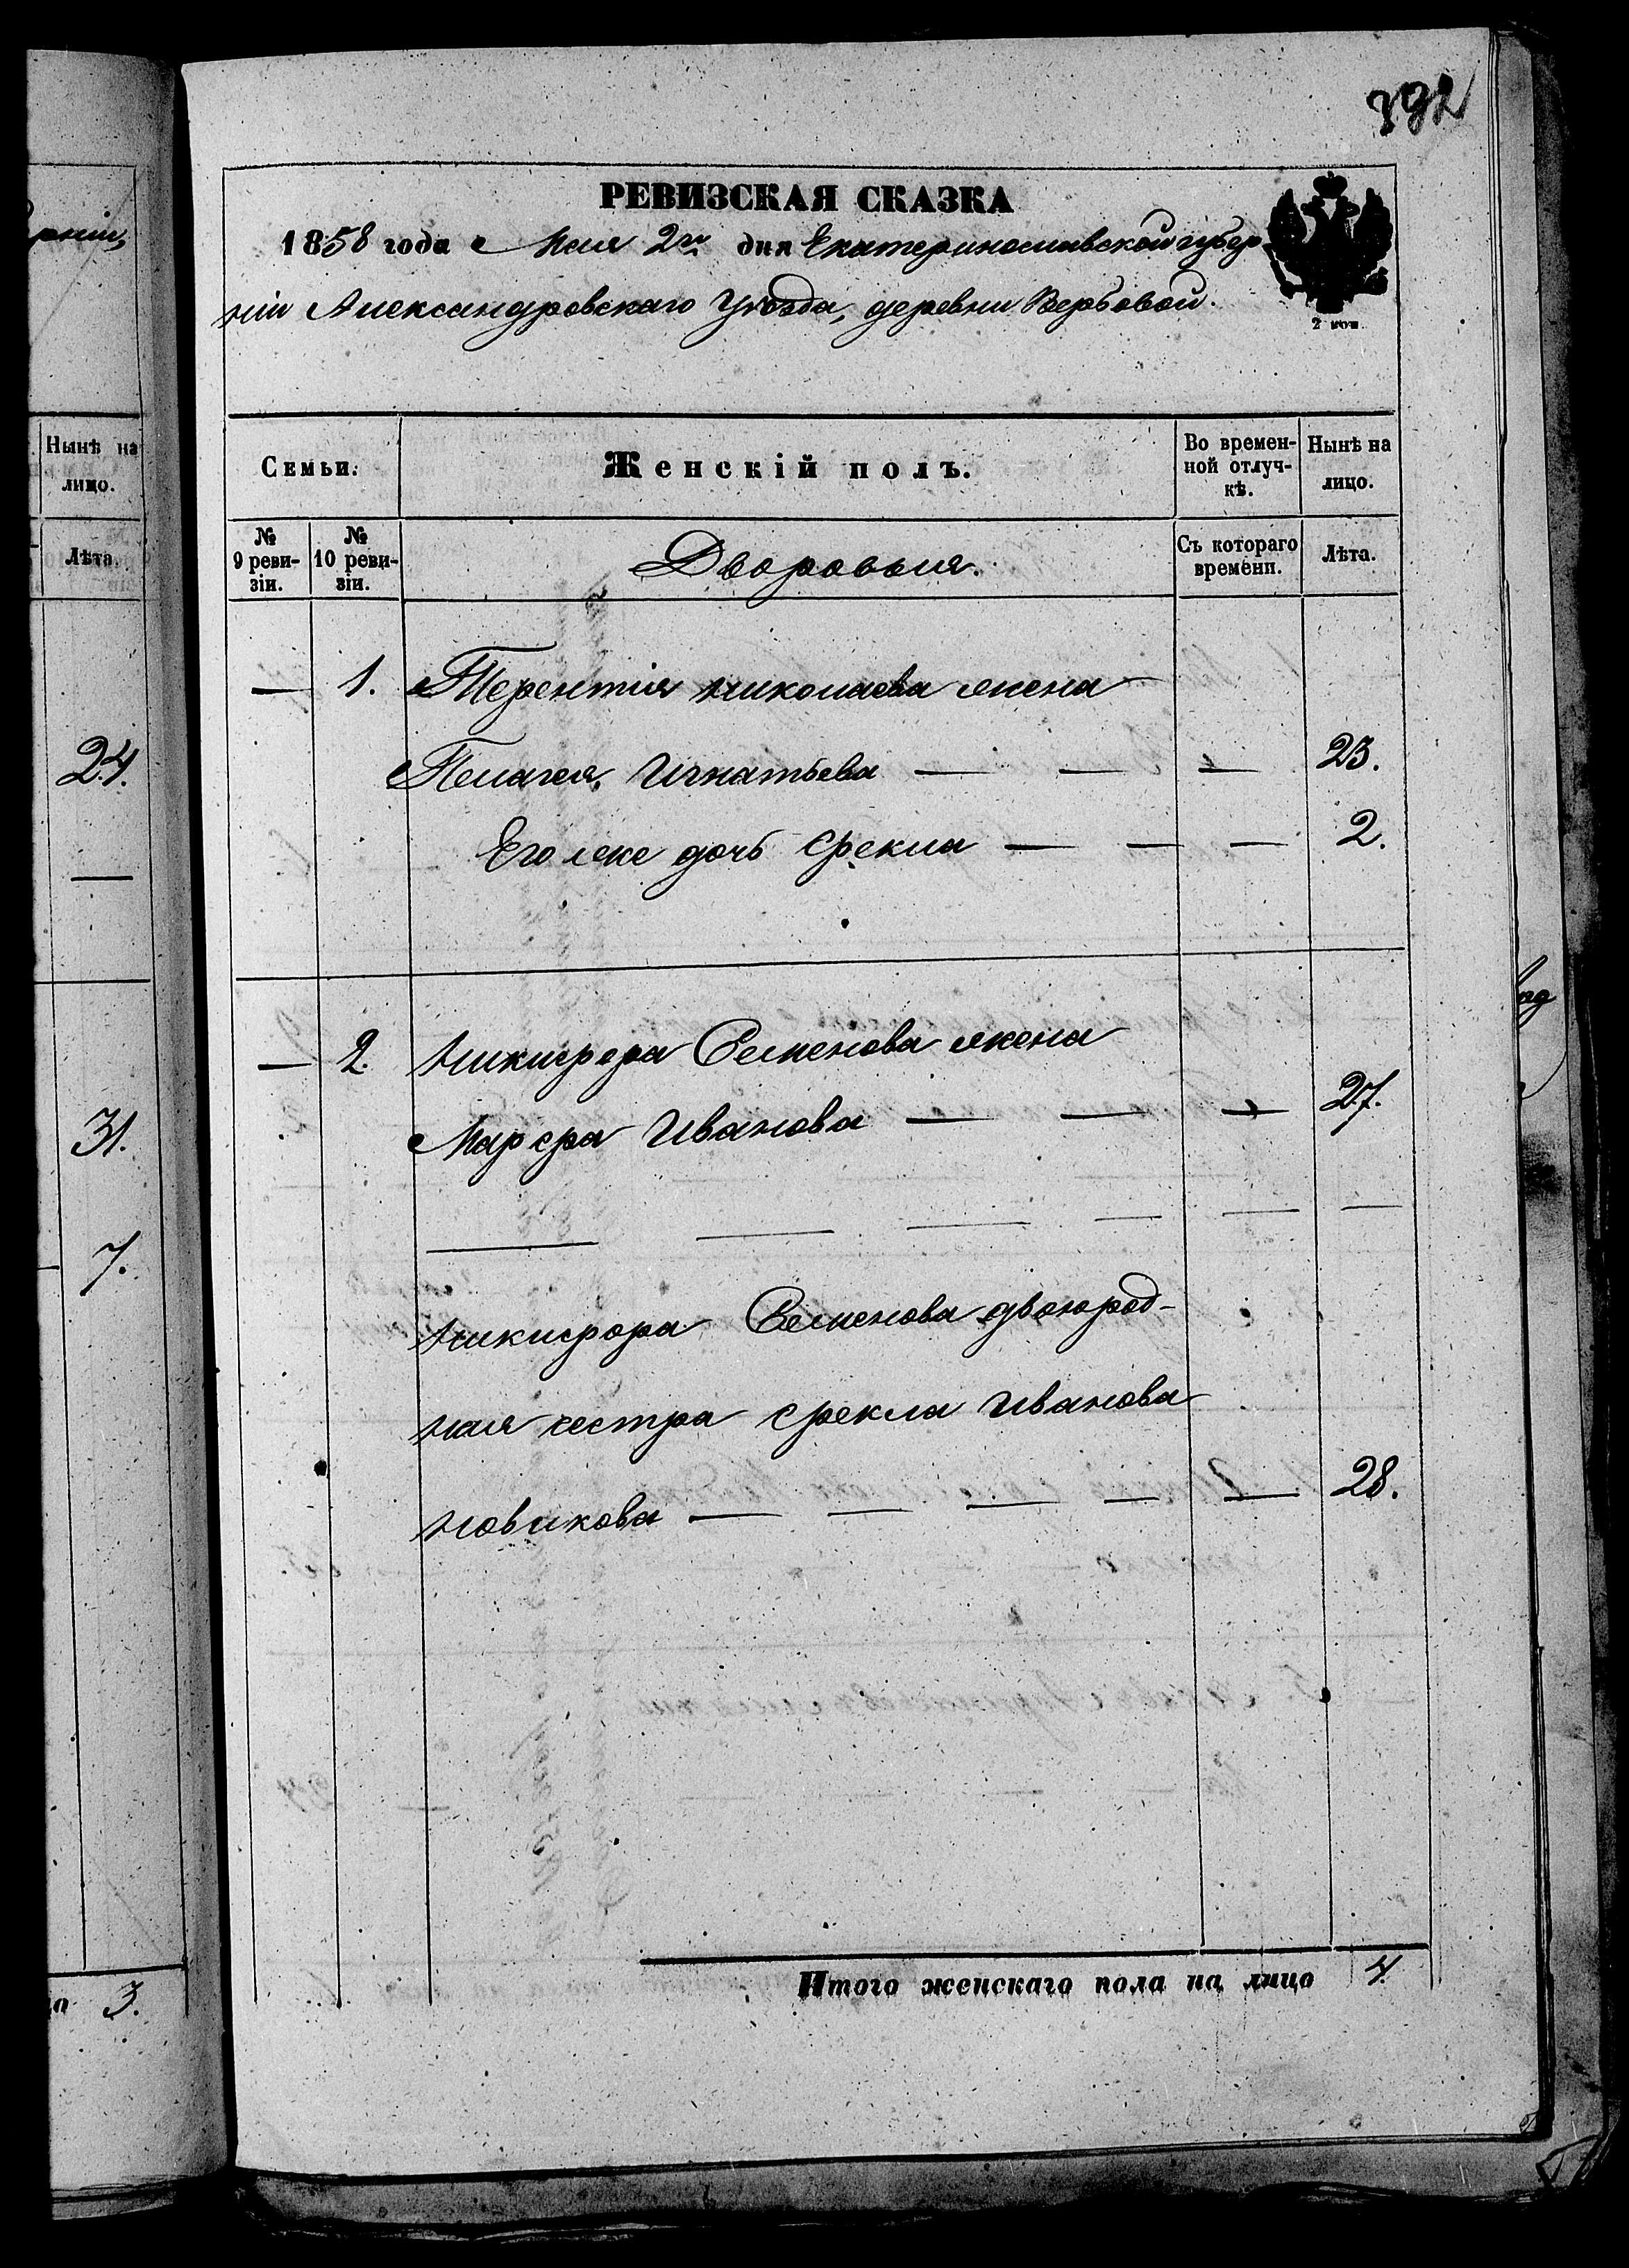 392
РЕВИЗСКАЯ СКАЗКА
1858 года Мая 2го дня Екатеринославской губер
ніи Александровскаго Уѣзда, деревни Вербовой.
2 коп.
рніи,
Нынѣ на
лицо.
Лѣта.
24.
31.
7.
3.
Семьи.
Женскій полъ.
Во времен-
ной отлуч-
кѣ.
Нынѣ на
лицо.
№
9 реви-
зіи.
№
10 реви-
зіи.
Дворовыя.
Съ котораго
времени.
Лѣта.
— 1. Терентія Николаева жена
Пелагея Игнатьева — — — 23.
Его же дочь Фекла — — — 2.
— 2. Никифора Семенова жена
Марфа Иванова — — — 27.
— — — — — —
Никифора Семенова двоюрод-
ная сестра Фекла Иванова
Новикова — — — — — 28.
Итого женскаго пола на лицо 4.